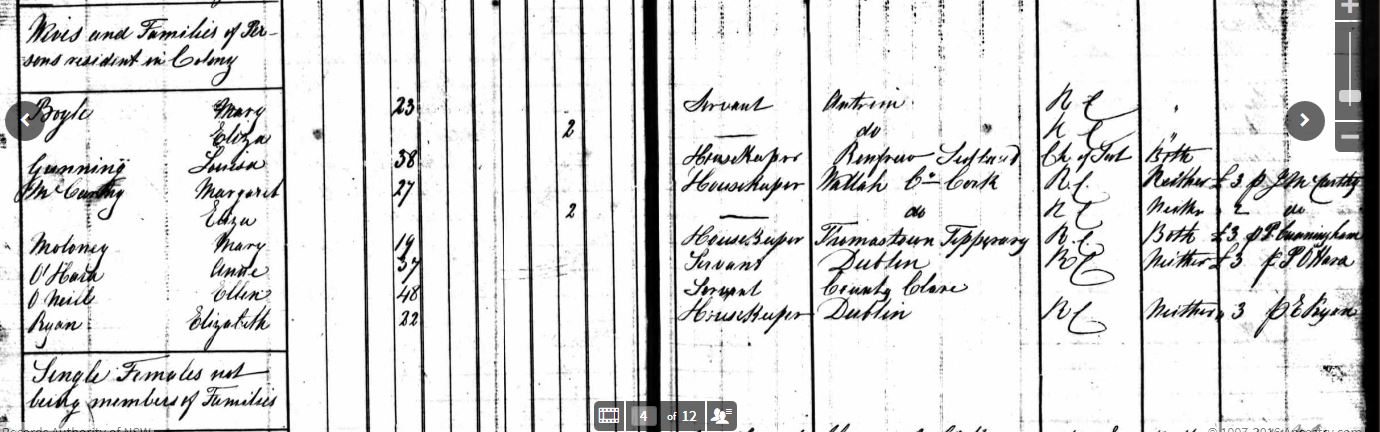 Wives and Families of Per-
sons resident in Colony
Boyle Mary 23 Servant Antrim R C "
Eliza 2 — do R C "
Gunning Louisa 38 HouseKeeper Renfrew Ch of Both
McCarthy Margaret 27 HouseKeeper Co Cork R C. Neither £3 p J McCarthy
Eliza 2 — do R C Neither " 2 do
Moloney Mary 19 HouseKeeper Thomastown Tipperary R.C. Both £3 p P Cunningham
O'Hara Anne 37 Servant Dublin R C Neither £3 p P O'Hara
O'Neill Ellen 48 Servant County Clare
Ryan Elizabeth 22 HouseKeeper Dublin R C Neither " 3 p E Ryan
Single Females not
being members of Families
4 of 12
Records Authority of NSW